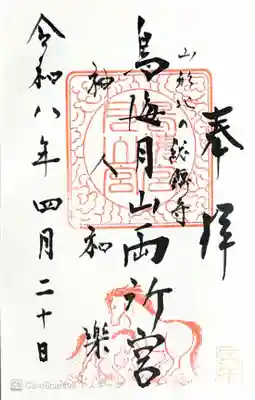 奉拝
山形 総鎮守
鳥海月山両所宮
神人和楽
令和八年四月二十日
CamScanner